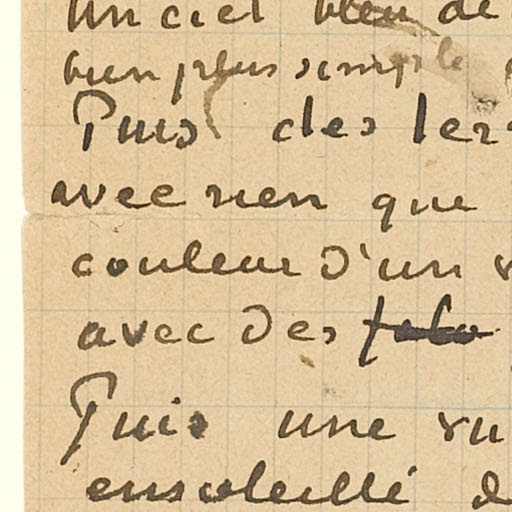 un ciel bleu de
bien plus simple
Puis des
avec rien que
couleur d'un
avec des
Puis une
ensoleillé